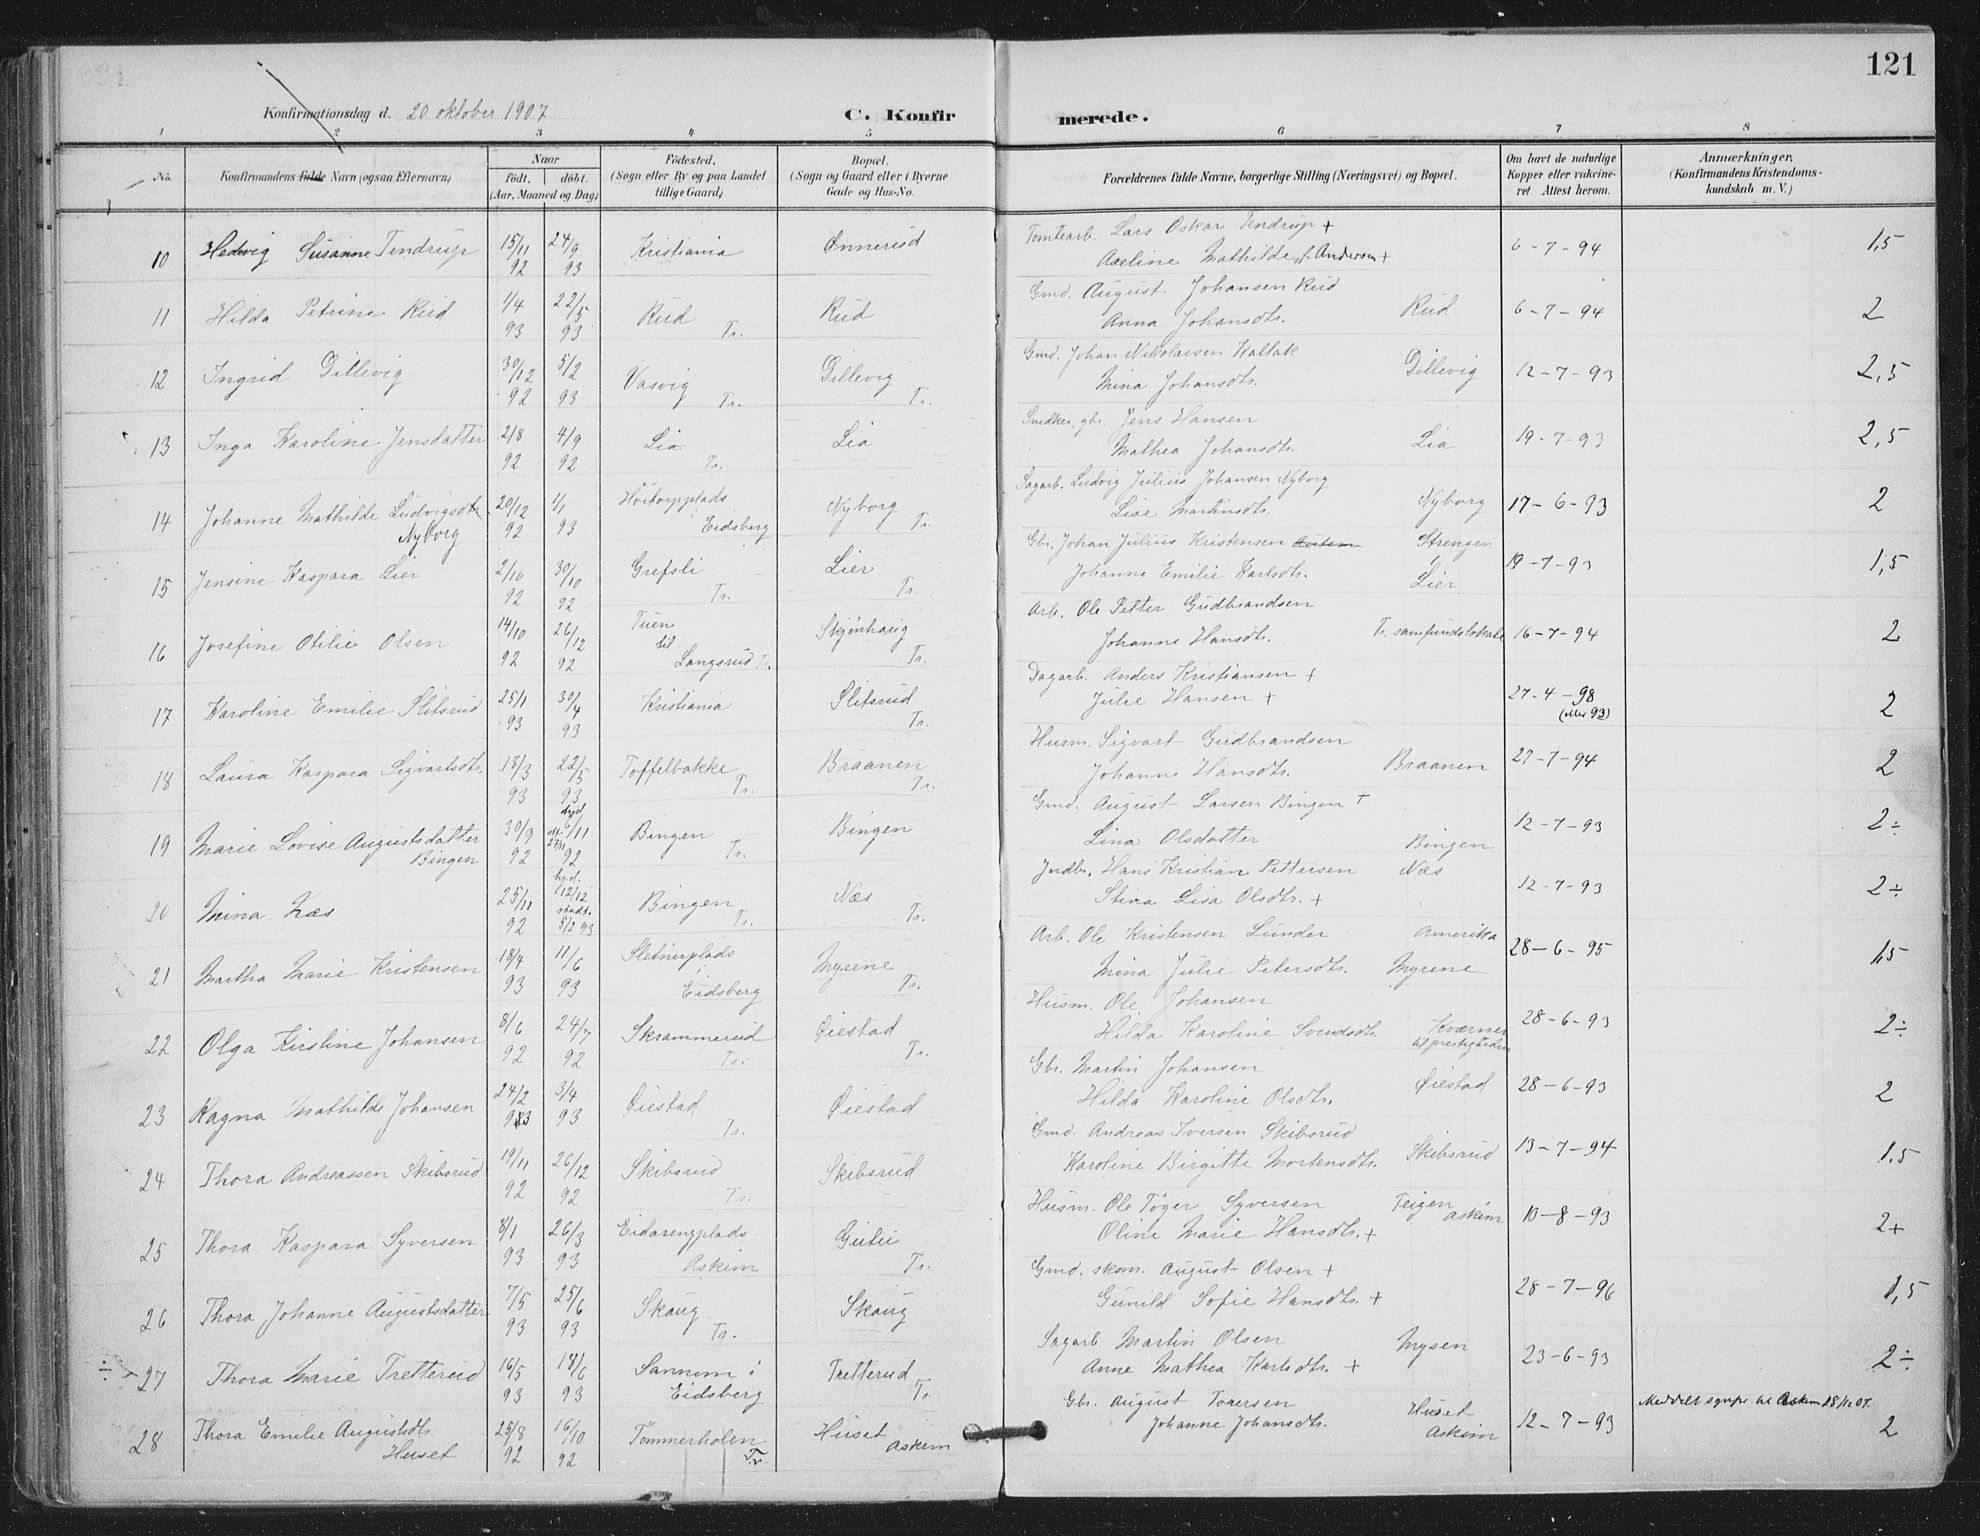 121
Konfirmationsdag d. 20 oktober 1907
C. Konfirmerede.
1 2 3 4 5 6 7 8
No.
Konfirmandens fulde Navn (ogsaa Efternavn)
Naar
født. døbt.
(Aar, Maaned og Dag)
Fødested.
(Sogn eller By og paa Landet
tillige Gaard)
Bopæl.
(Sogn og Gaard eller i Byerne
Gade og Hus-No.
Forældrenes fulde Navne, borgerlige Stilling (Næringsvei) og Bopæl.
Om havt de naturlige
Kopper eller vakcineret. Attest herom.
Anmærkninger,
(Konfirmandens Kristendomskundskab m. V.)
10 Hedvig Susanne Tendrup 15/11 92 24/9 93 Kristiania Ønnerud Tomtearb. Lars Oskar Tendrup +
Axeline Mathilde f. Andersen + 6-7-94 1,5
11 Hilda Petrine Rud 1/4 93 22/5 93 Rud Tr. Rud Gmd. August Johansen Rud
Anna Johansdtr. Rud 6-7-94 2
12 Ingrid Dillevig 30/12 92 5/2 93 Vasvig Tr. Dillevig Tr. Gmd. Johan Nikolaisen Kallak
Mina Johansdtr. Dillevig 12-7-93 2,5
13 Inga Karoline Jensdatter 2/8 92 4/9 92 Lia Tr. Lia Snedker, gbr. Jens Hansen
Mathea Johansdtr. Lia 19-7-93 2,5
14 Johanne Mathilde Ludvigsdtr. Nyborg 20/12 92 1/1 93 Høitorpplads Eidsberg Nyborg Tr. Sagarb. Ludvig Julius Johansen Nyborg
Lise Martinsdtr. Nyborg 17-6-93 2
15 Jensine Kaspara Lier 2/10 92 30/10 92 Grefsli Tr. Lier Tr. Gbr. Johan Julius Kristensen Strengen
Johanne Emilie Karlsdtr. Lier 19-7-93 1,5
16 Josefine Otilie Olsen 14/10 92 26/12 92 Tuen til Langsrud Tr. Skjønhaug Tr. Arb. Ole Petter Gudbrandsen
Johanne Hansdtr. Tr. samfundslokale 16-7-94 2
17 Karoline Emilie Slitsrud 25/1 93 30/4 93 Kristiania Slitsrud Tr. Dagarb. Anders Kristiansen +
Julie Hansen + 27-4-98 (eller 93) 2
18 Laura Kaspara Sigvartsdtr. 18/3 93 22/5 93 Toffelbakke Tr. Braanen Tr. Husm. Sigvart Gudbrandsen
Johanne Hansdtr. Braanen 27-7-94 2
19 Marie Lovise Augustsdatter Bingen 30/9 92 hjd. 6/11 27/11 92 Bingen Tr. Bingen Gmd. August Larsen Bingen +
Lina Olsdatter Bingen 12-7-93 2÷
20 Mina Næs 25/11 92 hjd. 12/12 stadf. 5/2 93 Bingen Tr. Næs Tr. Jordbr. Hans Kristian Pettersen Næs
Stina Lisa Olsdtr. + 12-7-93 2÷
21 Martha Marie Kristensen 18/4 93 11/6 93 Sletnerplads Eidsberg Myrene Tr. Arb. Ole Kristensen Lunder Amerika
Mina Julie Petersdtr. Myrene 28-6-95 1,5
22 Olga Kirstine Johansen 8/6 92 24/7 92 Skrammerud Tr. Øiestad Tr. Husm. Ole Johansen
Hilda Karoline Svendsdtr. Kværner til prestegården 28-6-93 2÷
23 Ragna Mathilde Johansen 24/2 93 3/4 93 Øiestad Tr. Øiestad Gbr. Martin Johansen
Hilda Karoline Olsdtr. Øiestad 28-6-93 2
24 Thora Andreassen Skibsrud 19/11 92 26/12 92 Skibsrud Tr. Skibsrud Gmd. Andreas Iversen Skibsrud
Karoline Birgitte Mortensdtr. Skibsrud 13-7-94 1.5
25 Thora Kaspara Syversen 8/1 93 26/3 93 Eidarengplads Askim Gutu Tr. Husm. Ole Tøger Syversen Feigen Askim
Oline Marie Hansdtr. + 10-8-93 2+
26 Thora Johanne Augustsdatter 7/5 93 25/6 93 Skaug Tr. Skaug Gmd. skom. August Olsen +
Gunild Sofie Hansdtr. + 28-7-96 1,5
÷ 27 Thora Marie Tretterud 16/5 93 18/6 93 Sannum i Eidsberg Tretterud Tr. Sagarb. Martin Olsen Mysen
Anne Mathea Karlsdtr. + 23-6-93 2÷
28 Thora Emilie Augustsdtr. Huset 25/8 92 16/10 92 Tømmerholen Tr. Huset Askim Gbr. August Torersen Huset
Johanne Johansdtr. Askim 12-7-93 Meddelt sognepr. til Askim 28/12 07. 2